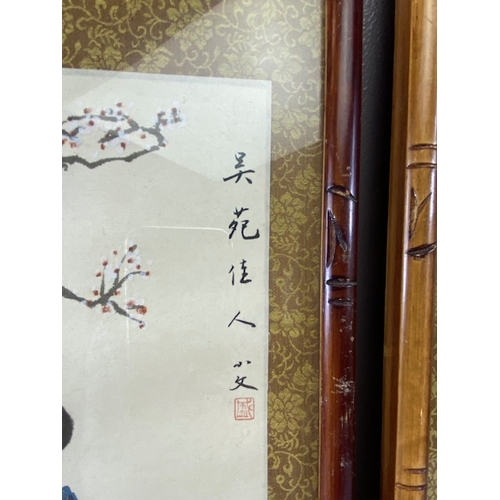 吴苑佳人 小文